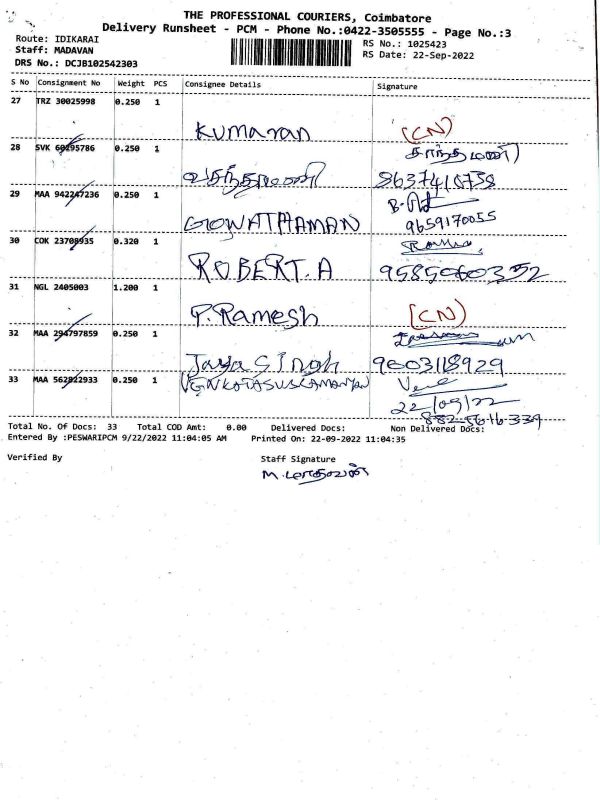 THE PROFESSIONAL COURIERS, Coimbatore
Delivery Runsheet - PCM - Phone No.:0422-3505555 - Page No.:3
Route: IDIKARAI
Staff: MADAVAN
RS No.: 1025423
RS Date: 22-Sep-2022
DRS No.: DCJB102542303
S No Consignment No Weight PCS Consignee Details Signature
27 TRZ 30025998 0.250 1
Kumaran (CN)
28 SVK 60295786 0.250 1 சாந்தமணி
வசந்தாமணி 8637418758
29 MAA 942247236 0.250 1
GOWATHAMAN 9659170055
30 COK 23708935 0.320 1
ROBERT.A 9585060352
31 NGL 2405003 1.200 1
P.Ramesh (CN)
32 MAA 294797859 0.250 1
Jaya Singh 9003118929
33 MAA 562822933 0.250 1
22/09/22
Total No. Of Docs: 33 Total COD Amt: 0.00 Delivered Docs: Non Delivered Docs:
Entered By :PESWARIPCM 9/22/2022 11:04:05 AM Printed On: 22-09-2022 11:04:35
Verified By Staff Signature
M.மாதவன்